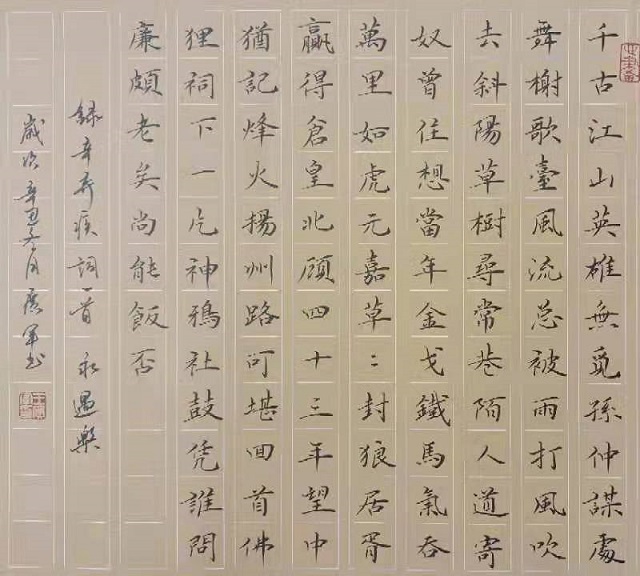 千古江山英雄無覓孫仲謀處
舞榭歌臺風流总被雨打風吹
去斜陽草樹尋常巷陌人道寄
奴曾住想當年金戈鐵馬氣吞
萬里如虎元嘉草〻封狼居胥
贏得倉皇北頋四十三年望中
猶記烽火揚州路可堪囬首佛
狸祠下一片神鴉社鼓凭誰問
廉頗老矣尚能飯否
錄辛弃疾詞一首 永遇樂
歲次辛丑冬月 軍书